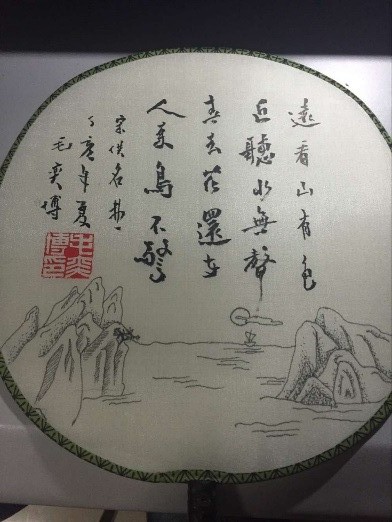 遠看山有色
近聽水無聲
春去花還在
人来鳥不驚
宋佚名
丁亥年夏
毛奕博
毛奕博印